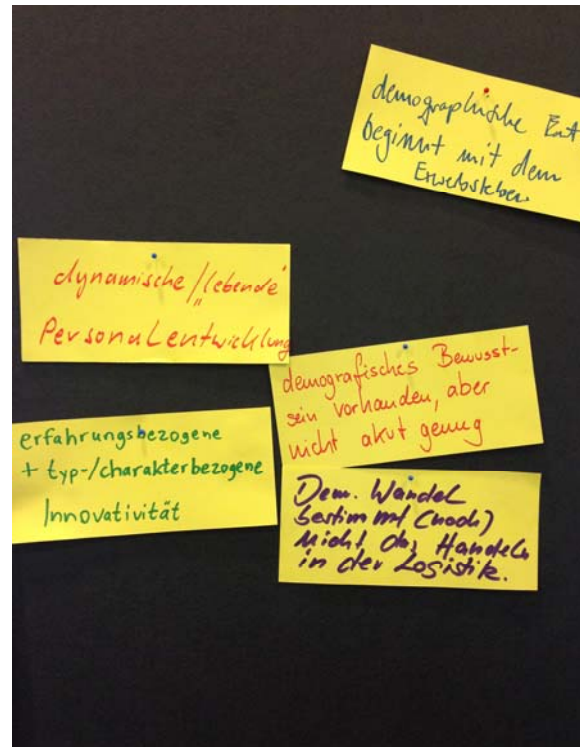 demographische Ent
beginnt mit dem
Erwerbsleben
dynamische/„lebende“
Personalentwicklung
demografisches Bewusst-
sein vorhanden, aber
nicht akut genug
erfahrungsbezogene
+ typ-/charakterbezogene
Innovativität
Dem. Wandel
bestimmt (noch)
nicht das Handeln
in der Logistik.